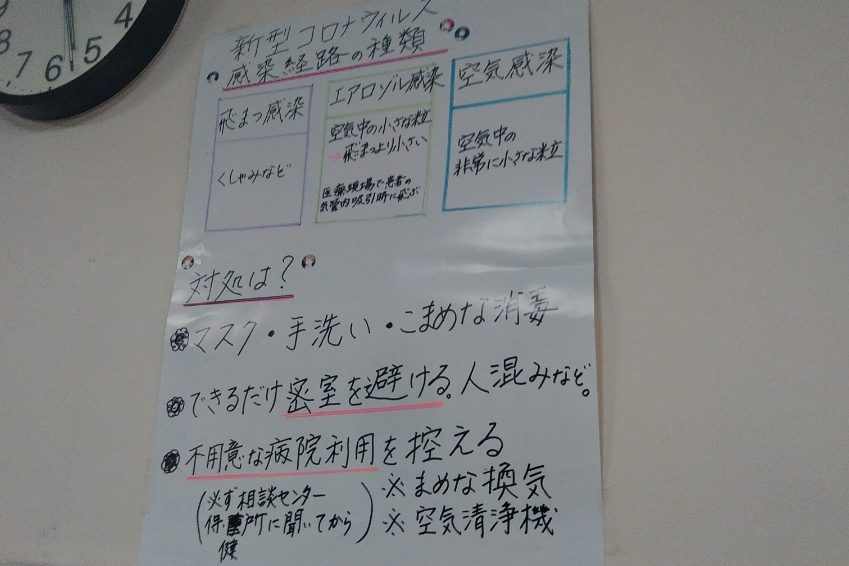 新型コロナウィルス
感染経路の種類
飛まつ感染
くしゃみなど
エアロゾル感染
空気中の小さな粒
→飛まつより小さい
医療現場で患者の
気管内吸引時に飛ぶ
空気感染
空気中の
非常に小さな粒
対処は?
マスク・手洗い・こまめな消毒
できるだけ密室を避ける。人混みなど。
不用意な病院利用を控える
(必ず相談センター
保健所に聞いてから)
※まめな換気
※空気清浄機
9
8
7
6
5
4